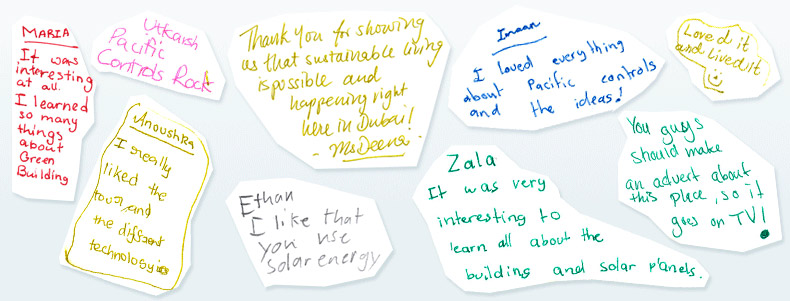 MARIA
It was
interesting
at all.
I learned
so many
things
about
Green
Building
Utkarsh
Pacific
Controls Rock
Thank you for showing
us that sustainable living
is possible and
happening right
here in Dubai!
- Ms Deena -
Imaan
I loved everything
about Pacific controls
and the ideas!
Loved it
and lived it
Anoushka
I really
liked the
tour, and
the different
technologies
Ethan
I like that
you use
solar energy
Zala
It was very
interesting to
learn all about the
building and solar panels.
You guys
should make
an advert about
this place, so it
goes on TV!